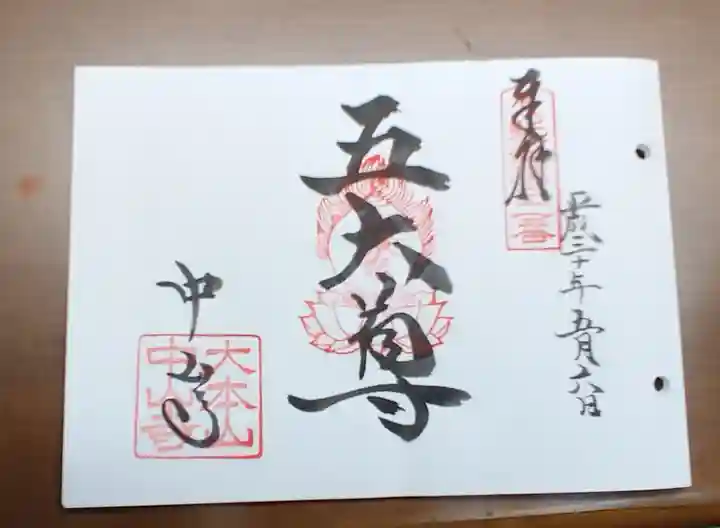 奉拝
平成三十年五月六日
五大尊
中山寺
大本山
中山寺